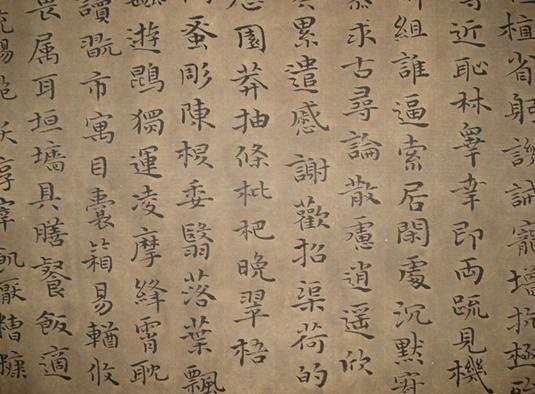 植省躬譏誡寵増抗極殆
近恥林皋幸即两疏見機
組誰逼索居閑處沉默寂
求古尋論散慮逍遥欣
累遣感謝歡招渠荷的
園莽抽條枇杷晚翠梧
蚤彫陳根委翳落葉飄
遊鵾獨運凌摩絳霄耽
讀翫市寓目囊箱易輶攸
畏属耳垣墻具膳飡飯適
充腸飽飫宰飢厭糟糠